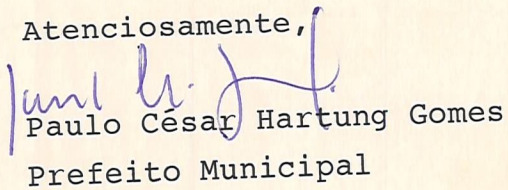 Atenciosamente,
Paulo César Hartung Gomes
Prefeito Municipal